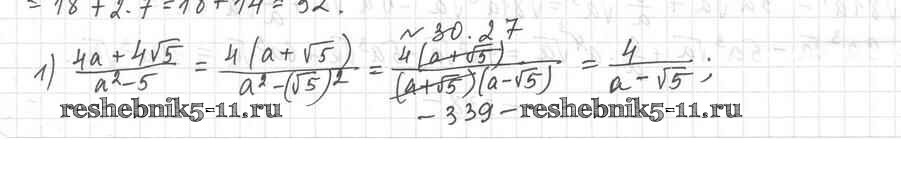 = 18 + 2·7 = 18 + 14 = 32.
~ 30.27
1) (4a + 4√5)/(a² - 5) = 4(a + √5)/(a² - (√5)²) = 4(a + √5)/((a + √5)(a - √5)) = 4/(a - √5);
reshebnik5-11.ru reshebnik5-11.ru
- 339 -